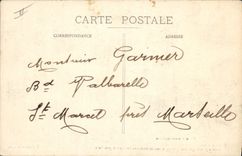 II
CARTE POSTALE
CORRESPONDANCE ADRESSE
Monsieur Garnier
Bd Valbarelle
St Marcel près Marseille